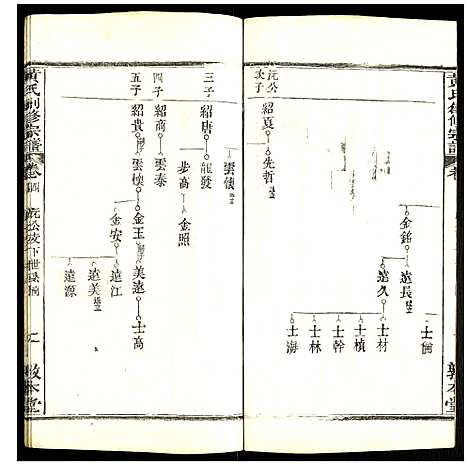 黃氏續修宗譜
卷
敦本堂
金銘
遠長
遠久
士
士材
士楨
士幹
士林
士海
沅公
次子
紹夏
先哲
三子
紹唐
龍發
雲
步高
金照
四子
紹商
雲泰
五子
紹貴
雲
金玉
美遠
士高
金安
遠江
遠美
遠源
黃氏創修宗譜
卷四
沅公放下世系
敦本堂